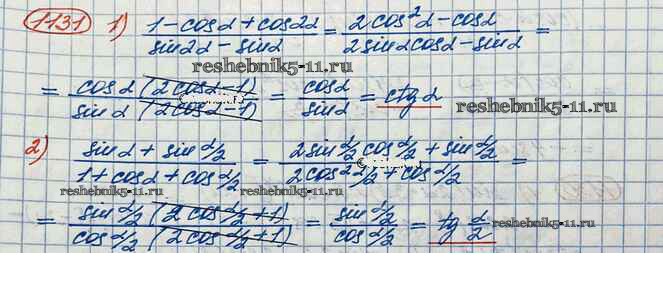 1131 1) (1-cosα+cos2α)/(sin2α-sinα) = (2cos²α-cosα)/(2sinαcosα-sinα) =
= (cosα(2cosα-1))/(sinα(2cosα-1)) = cosα/sinα = ctgα
reshebnik5-11.ru
reshebnik5-11.ru
2) (sinα+sinα/2)/(1+cosα+cosα/2) = (2sinα/2cosα/2+sinα/2)/(2cos²α/2+cosα/2) =
reshebnik5-11.ru
= (sinα/2(2cosα/2+1))/(cosα/2(2cosα/2+1)) = (sinα/2)/(cosα/2) = tgα/2
reshebnik5-11.ru